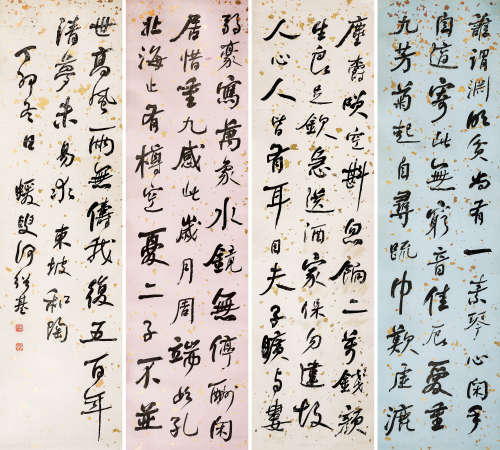 誰謂淵明貧尚有一素琴心閑手
自適寄此無窮音佳辰愛重
九芳菊起自尋疏巾歎虛漉
塵爵咲空斟忽餉二萬錢顏
生良足欽急送酒家保勿違故
人心人皆有耳目夫子曠與婁
弱豪寫萬象水鏡無停酬閑
居惜重九感此歲月周端如孔
北海止有樽空憂二子不並
世高風兩無儔我後五百年
清夢未易求東坡和陶
丁卯冬日蝯叟何紹基